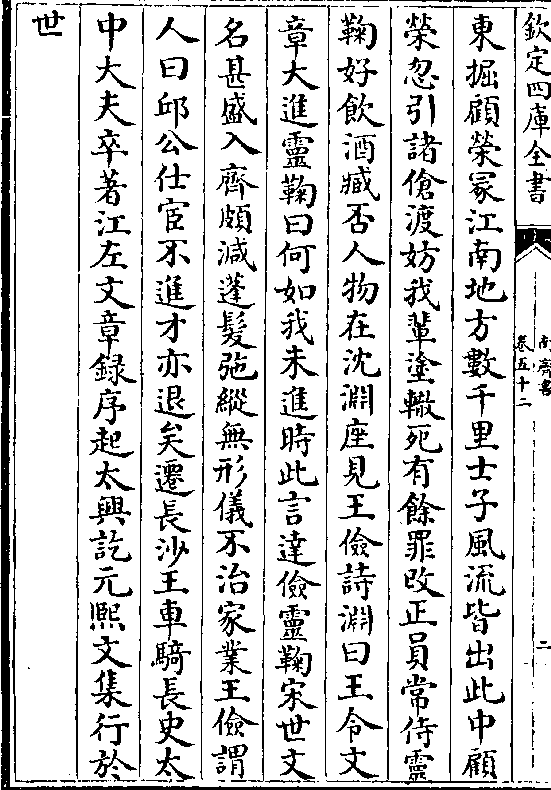 欽定四庫全書
南齊書
卷五十二
二
東掘顧榮冢江南地方數千里士子風流皆出此中顧
榮忽引諸傖渡妨我輩塗轍死有餘罪改正員常侍靈
鞠好飲酒臧否人物在沈淵座見王儉詩淵曰王令文
章大進靈鞠曰何如我未進時此言達儉靈鞠宋世文
名甚盛入齊頗減蓬髮弛縱無形儀不治家業王儉謂
人曰邱公仕宦不進才亦退矣遷長沙王車騎長史太
中大夫卒著江左文章錄序起太興訖元熙文集行於
世